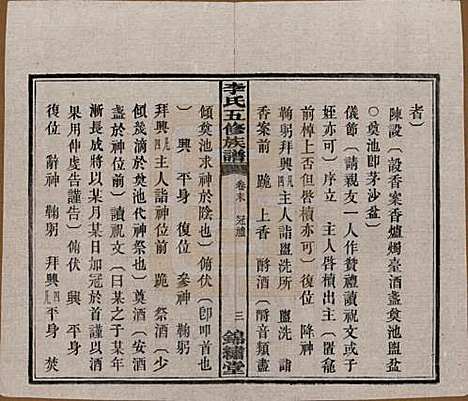 者）
陳設（設香案香爐燭臺酒盞奠池盥盆
○奠池即茅沙盆）
儀節（請親友一人作贊禮讀祝文或子
姪亦可）序立 主人啓櫝出主（匱龕
前樟上否但啓櫝亦可）復位 降神
鞠躬拜興凡四主人詣盥洗所 盥洗 詣
香案前 跪 上香 酹酒（酹音類盡
李氏五修族譜 卷末 冠禮 三 錦繡堂
傾奠池求神於陰也）俯伏（卽叩首也
） 興 平身 復位 參神 鞠躬
拜興凡四主人詣神位前 跪 祭酒（少
傾幾滴於奠池代神祭也）奠酒（安酒
盞於神位前）讀祝文（曰某之子某年
漸長成將以某月某日加冠於首謹以酒
果用伸虔告謹告）俯伏 興 平身
復位 辭神 鞠躬 拜興凡四平身 焚